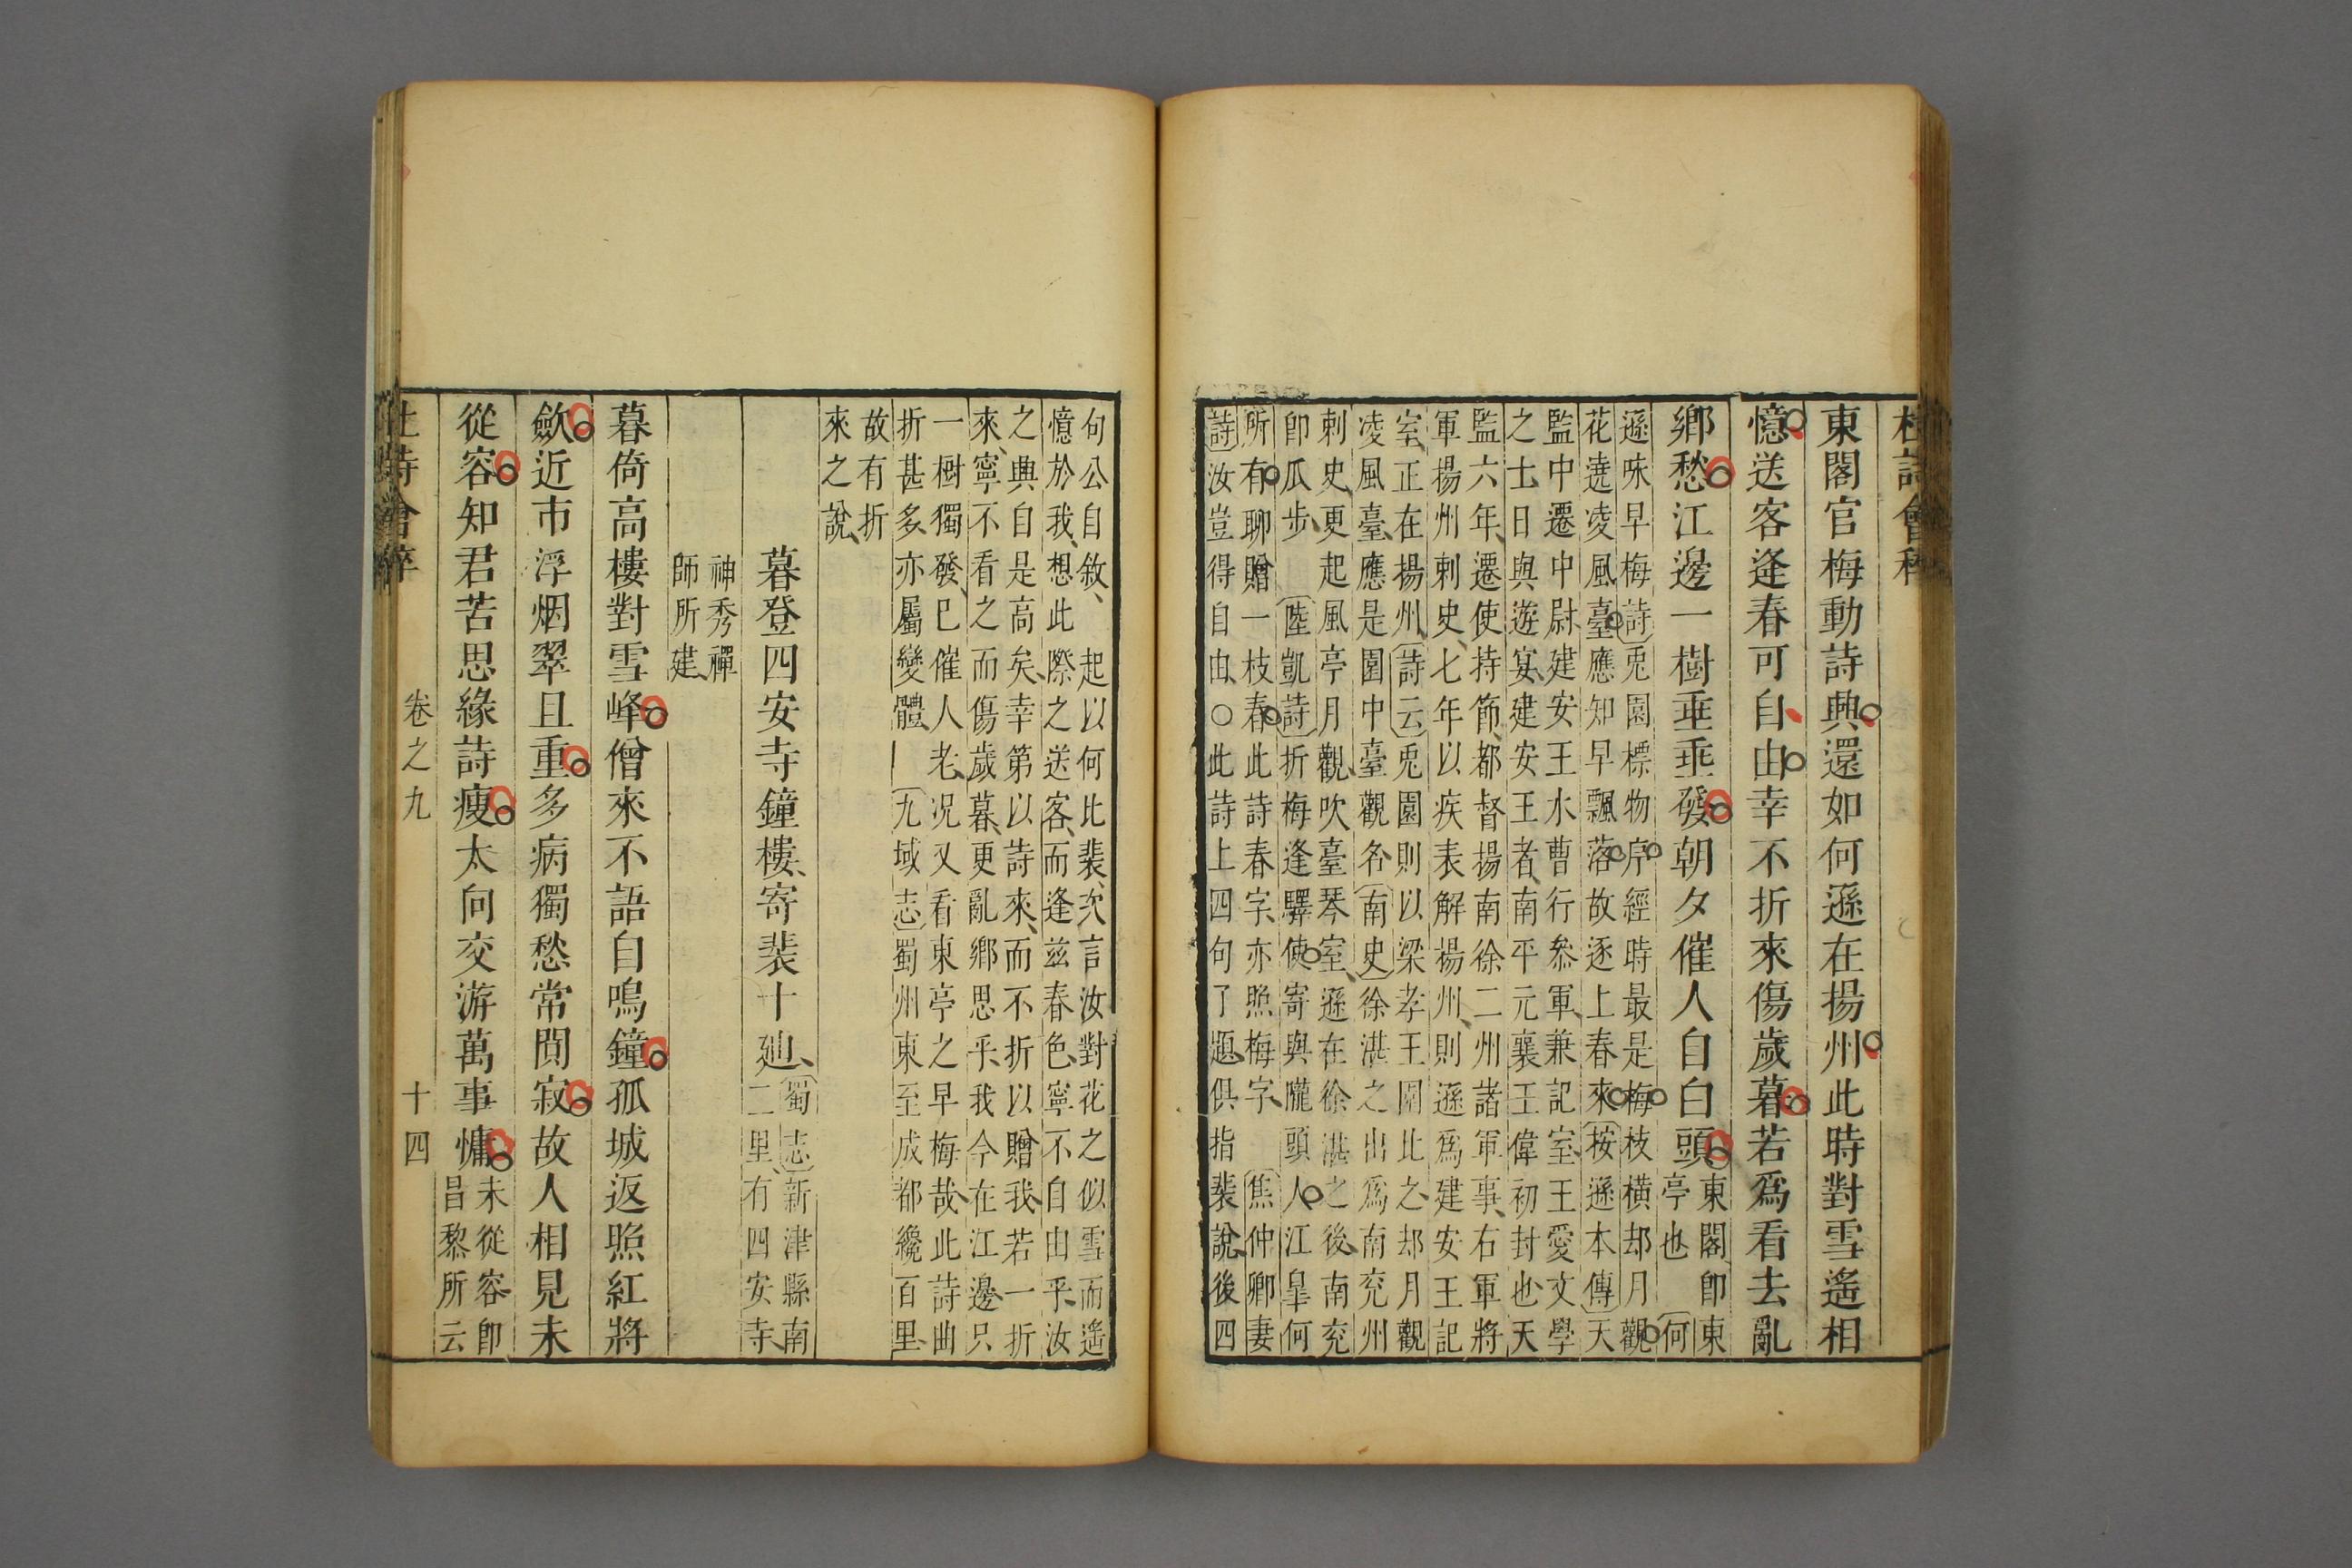 杜詩會稡
東閣官梅動詩興還如何遜在揚州此時對雪遙相
憶送客逢春可自由幸不折來傷歲暮若爲看去亂
鄉愁江邊一樹垂垂發朝夕催人自白頭
東閣卽東
亭也 何
遜咏早梅詩兎園標物序經時最是梅枝橫却月觀
花遶凌風臺應知早飄落故逐上春來按遜本傳天
監中遷中尉建安王水曹行參軍兼記室王愛文學
之士日與遊宴建安王者南平元襄王偉初封也天
監六年遷使持節都督揚南徐二州諸軍事右軍將
軍揚州刺史七年以疾表解揚州則遜爲建安王記
室正在揚州詩云兎園則以梁孝王園比之却月觀
凌風臺應是園中臺觀名南史徐湛之出爲南兖州
刺史更起風亭月觀吹臺琴室遜在徐湛之後南兖
卽瓜步 陸凱詩折梅逢驛使寄與隴頭人江臯何
所有聊贈一枝春此詩春字亦照梅字 焦仲卿妻
詩汝豈得自由○此詩上四句了題俱指裴說後四
句公自敘起以何比裴次言汝對花之似雪而遙
憶於我想此際之送客而逢兹春色寧不自由乎汝
之興自是高矣幸第以詩來而不折以贈我若一折
來寧不看之而傷歲暮更亂鄉思乎我今在江邊只
一樹獨發已催人老况又看東亭之早梅哉此詩曲
折甚多亦屬變體 九域志蜀州東至成都纔百里
故有折
來之說
暮登四安寺鐘樓寄裴十廸
蜀志新津縣南
二里有四安寺
神秀禪
師所建
暮倚高樓對雪峰僧來不語自鳴鐘孤城返照紅將
斂近市浮烟翠且重多病獨愁常閴寂故人相見未
從容知君苦思緣詩瘦太向交游萬事慵
未從容卽
昌黎所云
杜詩會稡 卷之九 十四